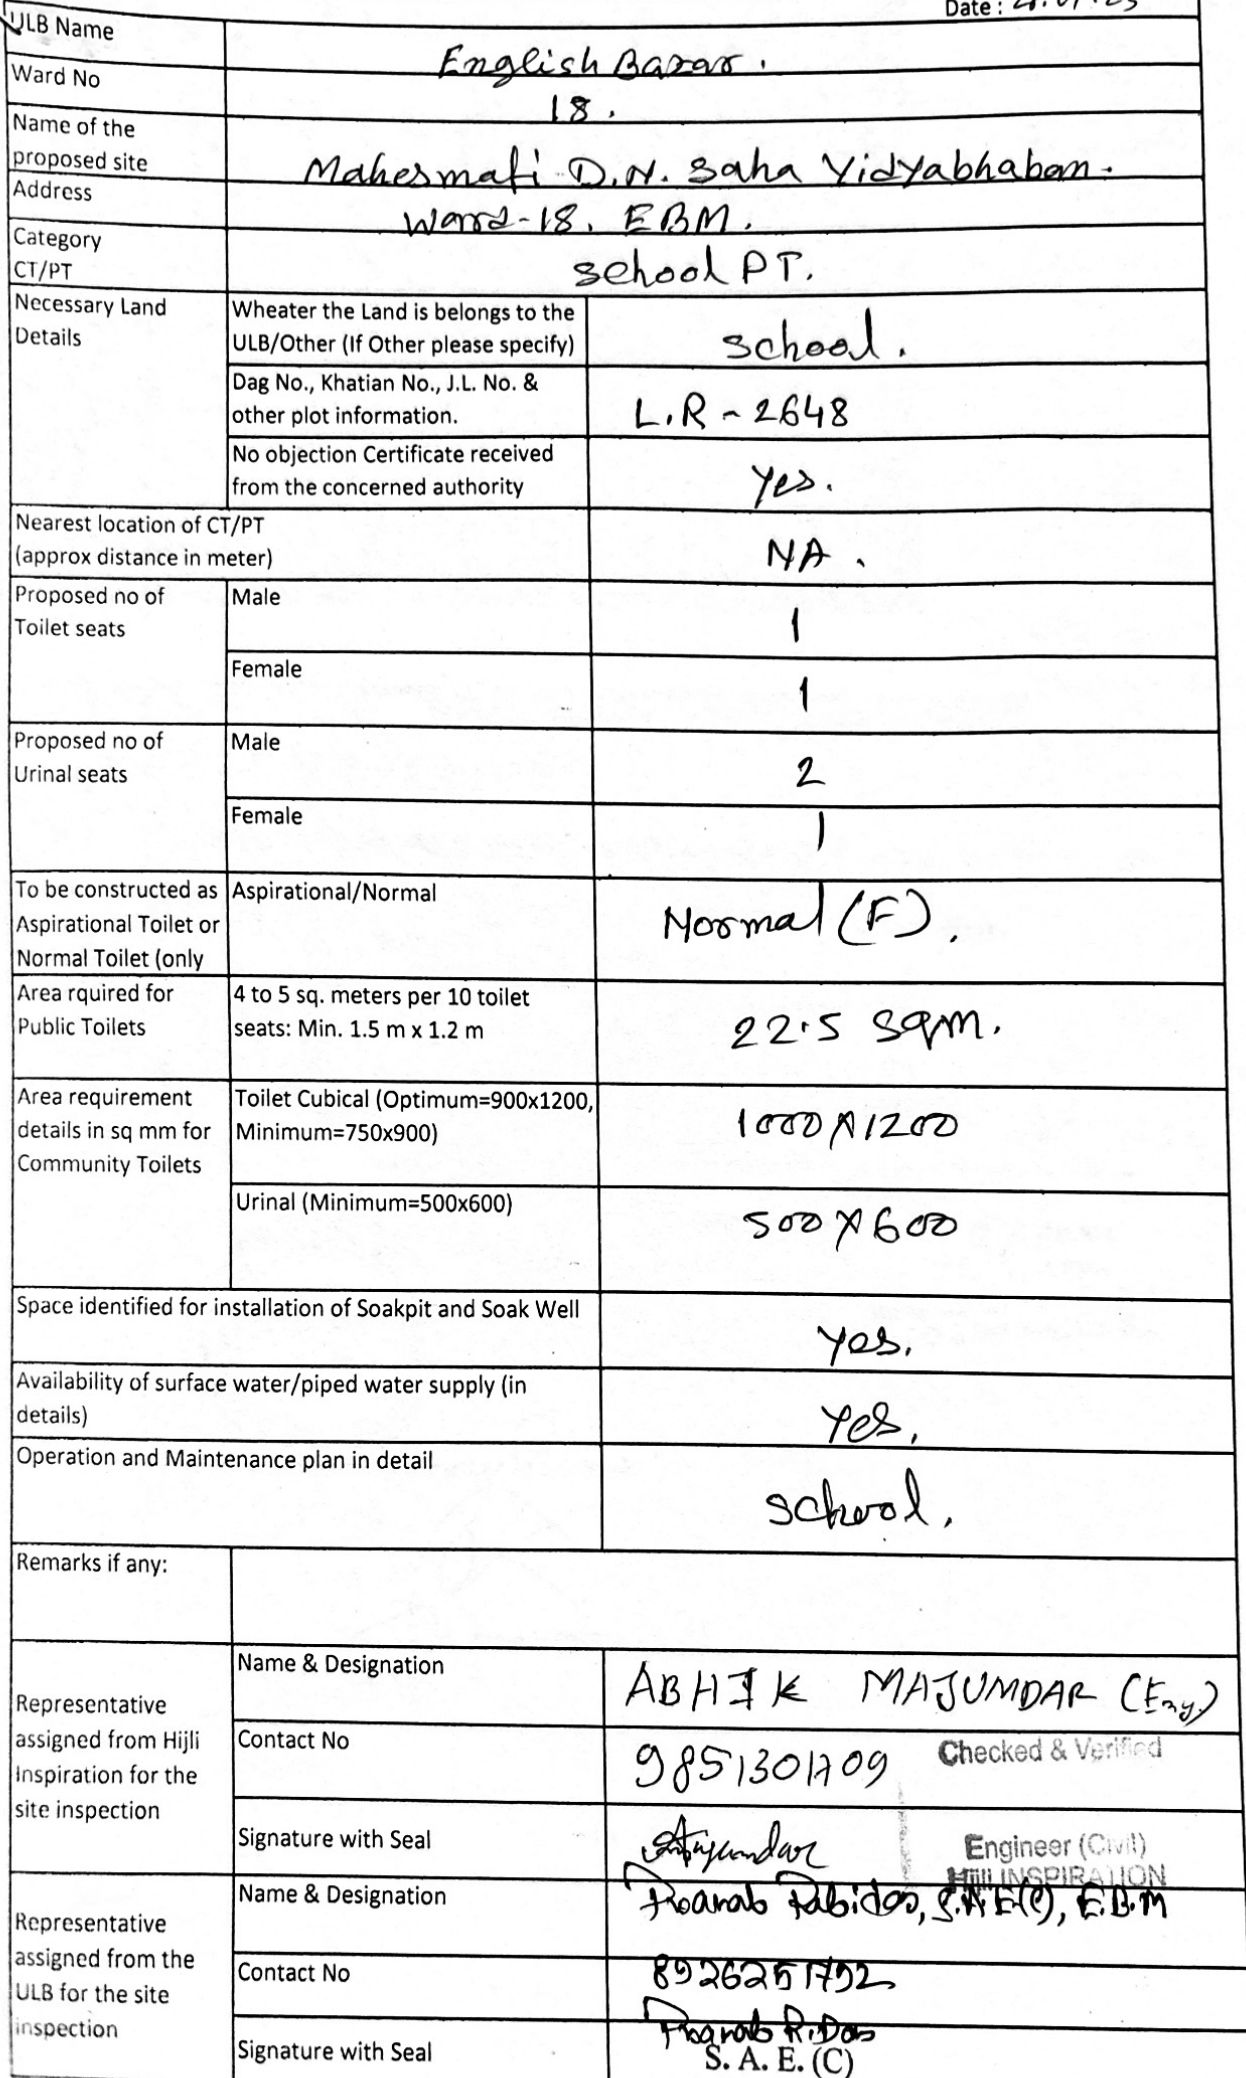 Date :
ULB Name
English Bazar.
Ward No
18.
Name of the
proposed site
Mahesmati D.N. Saha Vidyabhaban.
Address
Ward-18, EBM.
Category
CT/PT
School PT.
Necessary Land
Details
Wheater the Land is belongs to the
ULB/Other (If Other please specify)
School.
Dag No., Khatian No., J.L. No. &
other plot information.
L.R - 2648
No objection Certificate received
from the concerned authority
Yes.
Nearest location of CT/PT
(approx distance in meter)
NA.
Proposed no of
Toilet seats
Male
1
Female
1
Proposed no of
Urinal seats
Male
2
Female
1
To be constructed as
Aspirational Toilet or
Normal Toilet (only
Aspirational/Normal
Normal (F).
Area rquired for
Public Toilets
4 to 5 sq. meters per 10 toilet
seats: Min. 1.5 m x 1.2 m
22.5 sqm.
Area requirement
details in sq mm for
Community Toilets
Toilet Cubical (Optimum=900x1200,
Minimum=750x900)
1000 X 1200
Urinal (Minimum=500x600)
500 X 600
Space identified for installation of Soakpit and Soak Well
Yes.
Availability of surface water/piped water supply (in
details)
Yes,
Operation and Maintenance plan in detail
School.
Remarks if any:
Representative
assigned from Hijli
Inspiration for the
site inspection
Name & Designation
ABHIK MAJUMDAR (Eng)
Contact No
9851301709
Checked & Verified
Signature with Seal
Engineer (Civil)
Hijli INSPIRATION
Representative
assigned from the
ULB for the site
inspection
Name & Designation
Pranab Rabidas, S.A.E(C), E.B.M
Contact No
8926251792
Signature with Seal
Pranab R. Das
S. A. E. (C)